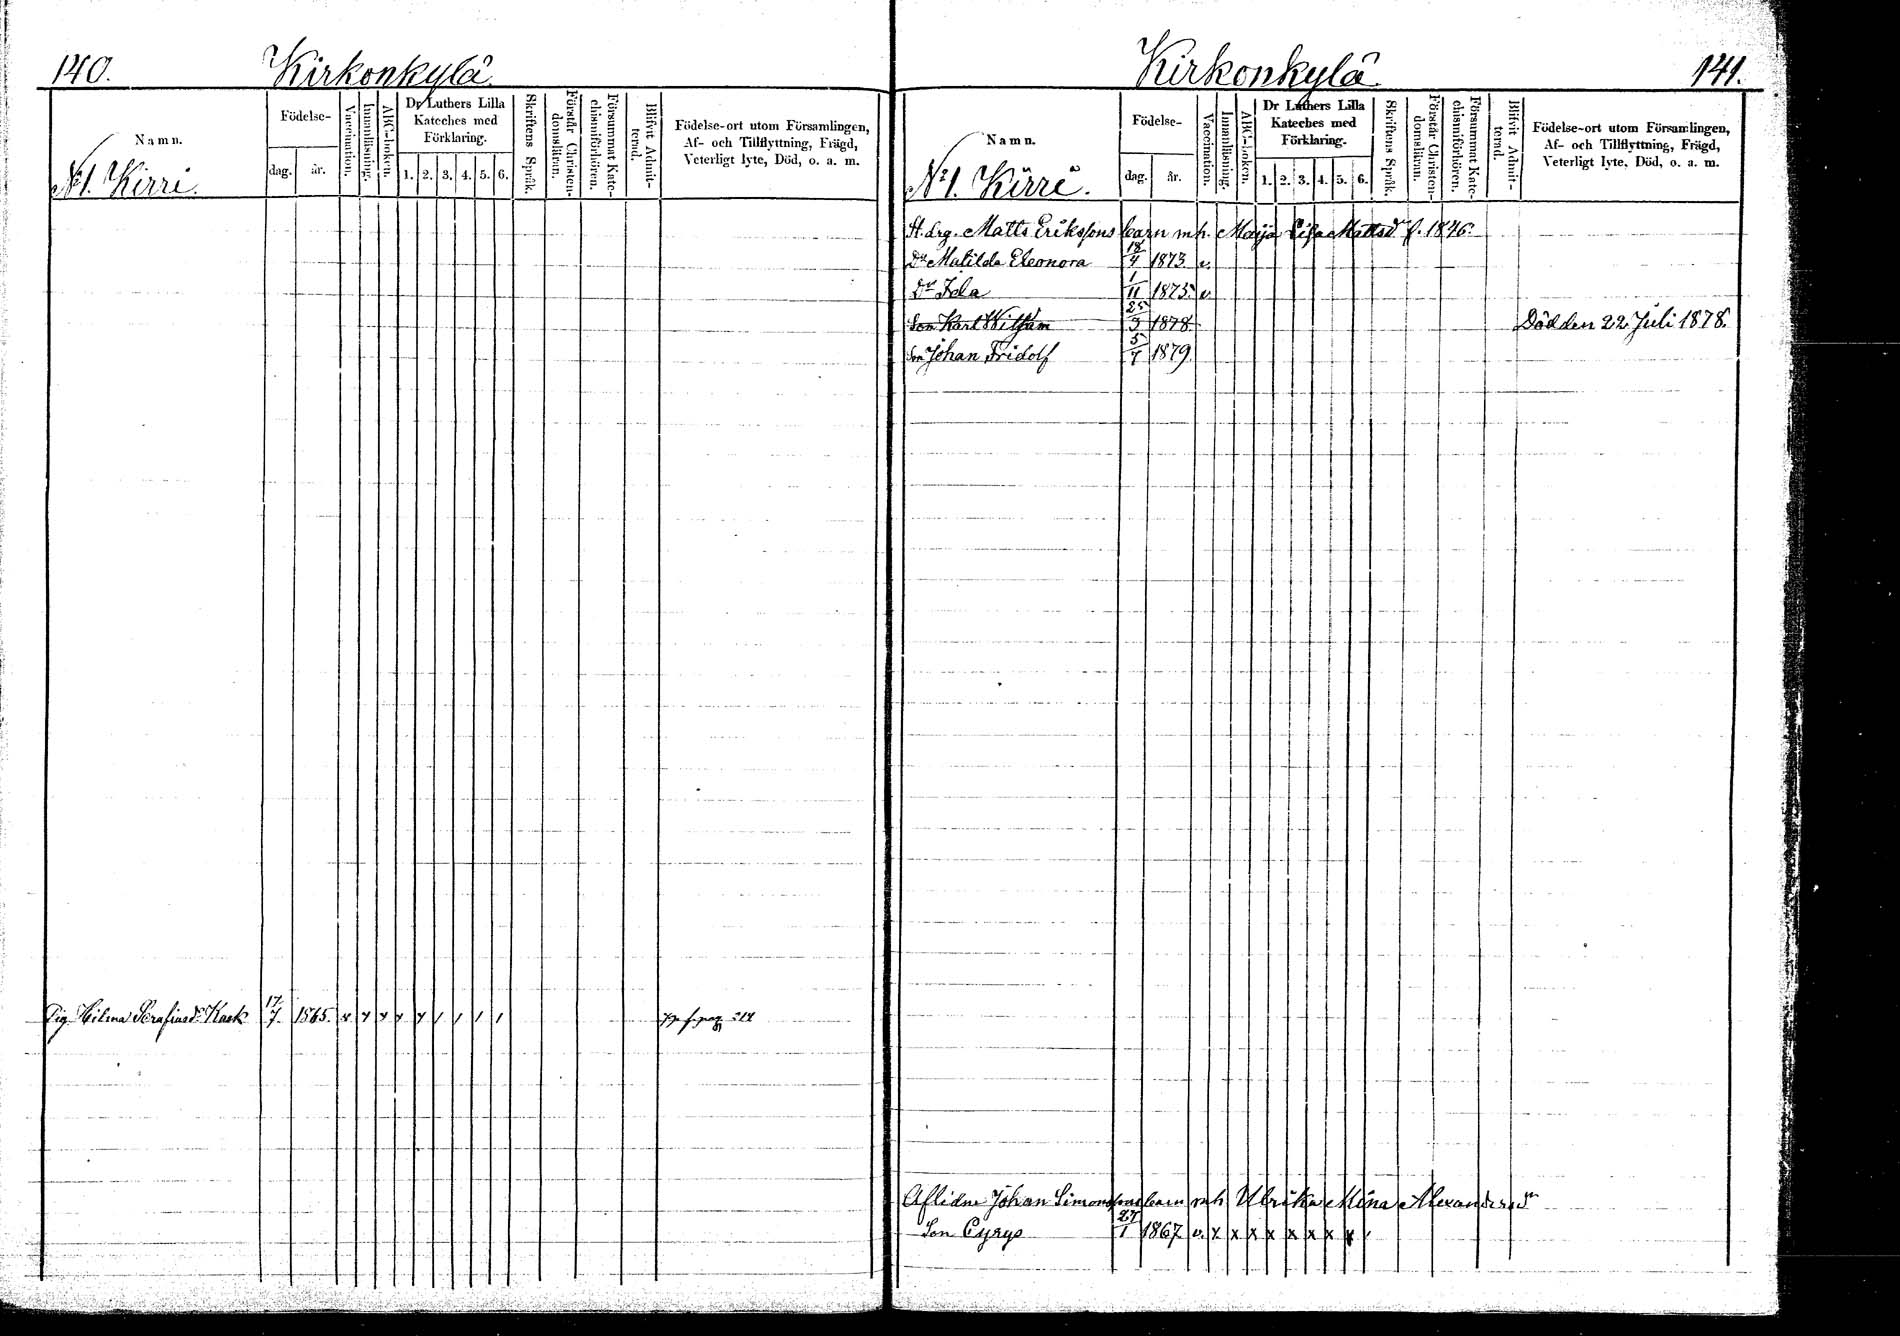 140. Kirkonkylä
Namn.
Födelse-
dag. år.
Vaccination.
Innanläsning.
ABC-boken.
Dr Luthers Lilla Kateches med Förklaring.
1. 2. 3. 4. 5. 6.
Skriftens Språk.
Förstår Christen-
domsläran.
Försummat Kate-
chismiförhören.
Blifvit Admit-
terad.
Födelse-ort utom Församlingen,
Af- och Tillflyttning, Frägd,
Veterligt lyte, Död, o. a. m.
No 1. Kirri.
Pig. Hilma Serafiasdr Kask 17/7. 1865. x x x x x / / / /
Kirkonkylä 141.
Namn.
Födelse-
dag. år.
Vaccination.
Innanläsning.
ABC-boken.
Dr Luthers Lilla
Kateches med
Förklaring.
1. 2. 3. 4. 5. 6.
Skriftens Språk.
Förstår Christen-
domsläran.
Försummat Kate-
chismiförhören.
Blifvit Admit-
terad.
Födelse-ort utom Församlingen,
Af- och Tillflyttning, Frägd,
Veterligt lyte, Död, o. a. m.
No 1. Kirri.
St. drg. Matts Erikssons barn m h. Maija Lisa Mattsdr f. 1846.
Dr Matilda Eleonora 18/4 1873 v.
Dr Ida 1/11 1875. v
Son Karl Wilham 25/3 1878 Död den 22 Juli 1878.
Son Johan Fridolf 5/7 1879.
Aflidne Johan Simonssons barn m h Ulrika Mina Alexandersdr
Son Cyrys 27/1 1867 v. x x x x x x x x /